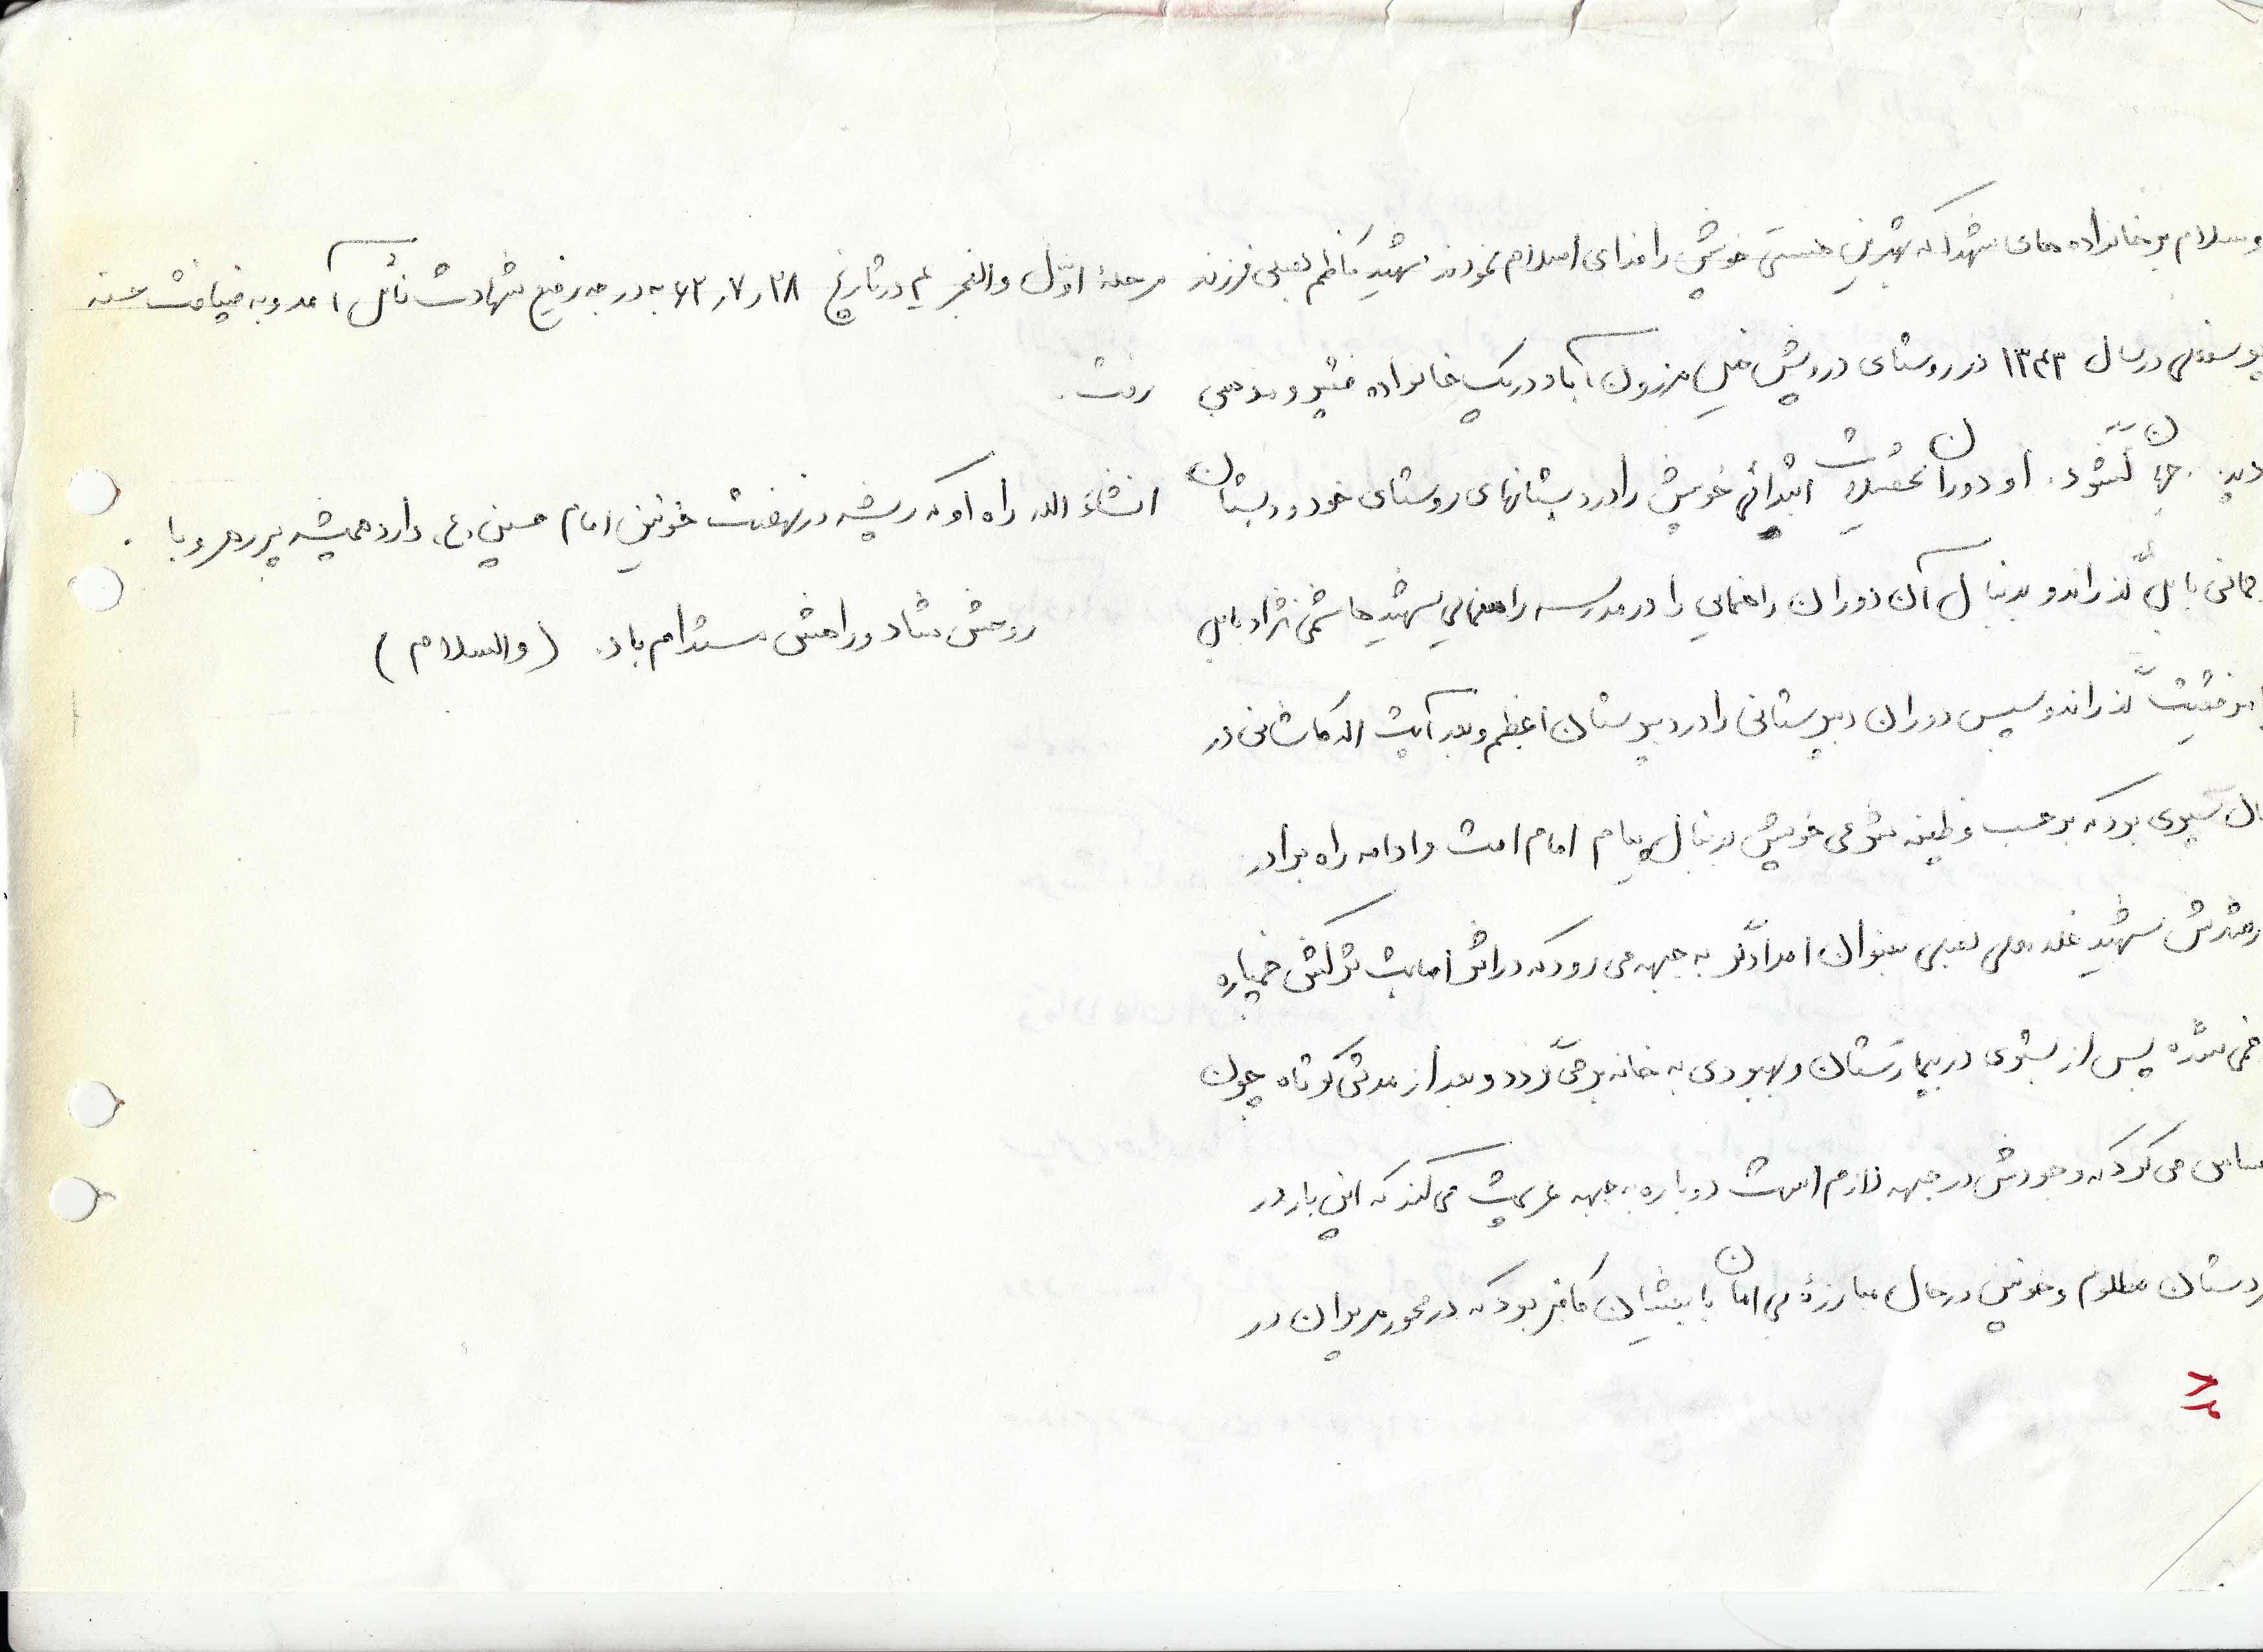 وسلام بر خانواده های شهدا که بهترین هستی خویش را فدای اسلام نمودند شهید کاظم لعلی فرزند
یوسفعلی در سال ۱۳۴۳ در روستای درویش خیل مرزون آباد در یک خانواده فقیر و مذهبی
دیده بجهان گشود. او دوران تحصیلات ابتدائی خویش را در دبستانهای روستای خود و دبستان
بابل گذراند و بدنبال آن دوران راهنمایی را در مدرسه راهنمایی شهید هاشمی نژاد بابل
با موفقیت گذراند و سپس دوران دبیرستانی را در دبیرستان اعظم و بعد آیت اله کاشانی در
سپری بود که بر حسب وظیفه شرعی خویش بدنبال پیام امام امت و ادامه راه برادر
شهید غلامعلی لعلی بعنوان امدادگر به جبهه می رود که در اثر اصابت ترکش خمپاره
زخمی شده پس از بستری در بیمارستان و بهبودی به خانه برمی گردد و بعد از مدتی کوتاه چون
احساس می کرد که وجودش در جبهه لازم است دوباره به جبهه عزیمت می کند که این بار در
کردستان مظلوم و خونین در حال مبارزۀ بی امان با بعثیان کافر بود که در محور مریوان در
مرحلۀ اوّل والفجر ۴ در تاریخ ۶۲٫۷٫۲۸ به درجه رفیع شهادت نائل آمد و به ضیافت
رفت.
انشاء الله راه او که ریشه در نهضت خونین امام حسین (ع) دارد همیشه پر رهرو با
روحش شاد و راهش مستدام باد. (والسلام)